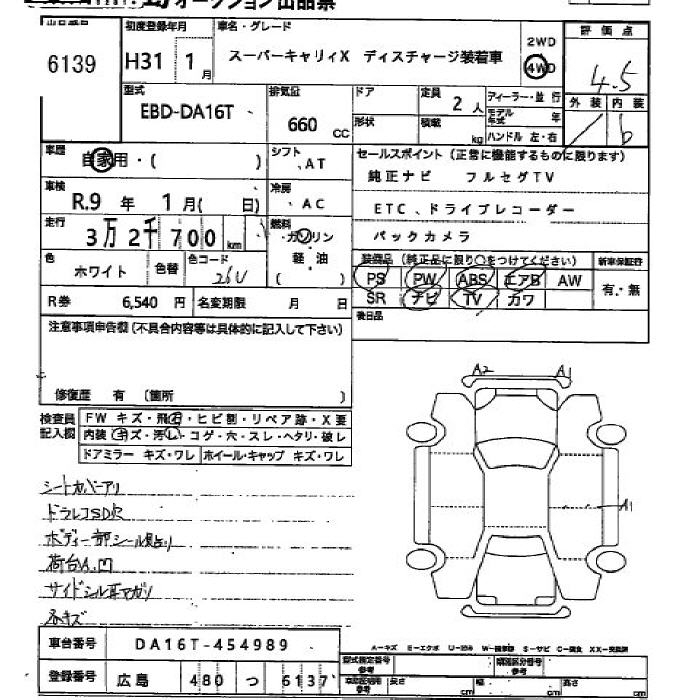 オークション出品票
6139
初度登録年月
H31 1月
車名・グレード
スーパーキャリィX ディスチャージ装着車
2WD
4WD
評価点
4.5
外装 内装
6
型式
EBD-DA16T
排気量
660 cc
ドア
形状
定員
2人
積載 kg
ディーラー・並行
モデル年式 年
ハンドル 左・右
車歴
自家用・( )
シフト
AT
車検
R.9 年 1月( 日)
冷房
AC
走行
3万2千700km
燃料
ガソリン
軽・油
( )
色
ホワイト
色替
色コード
26U
R券 6,540円
名変期限 月 日
セールスポイント(正常に機能するものに限ります)
純正ナビ フルセグTV
ETC、ドライブレコーダー
バックカメラ
装備品(純正品に限り○をつけてください)
PS PW ABS エアB AW
SR ナビ TV カワ
新車保証書
有・無
後日品
注意事項申告欄(不具合内容等は具体的に記入して下さい)
修復歴 有 (箇所 )
検査員記入欄
FW キズ・飛石・ヒビ割・リペア跡・X要
内装 キズ・汚レ・コゲ・穴・スレ・ヘタリ・破レ
ドアミラー キズ・ワレ ホイール・キャップ キズ・ワレ
シートカバーアリ
ドラレコSD欠
荷台A.凹
各キズ
A2 A1
A1
車台番号 DA16T-454989
登録番号 広島 480 つ 6137
A-キズ E-エクボ U-凹み S-サビ C-腐食 XX-交換済
型式指定番号
参考
類別区分番号
参考
長さ cm
幅 cm
高さ cm